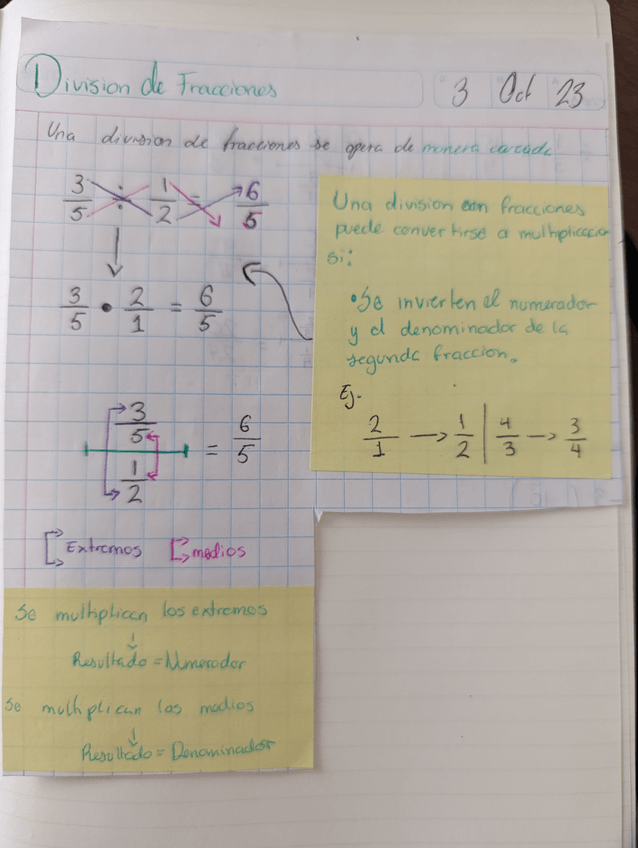 Division de Fracciones
3 Oct 23
Una division de fracciones se opera de manera
3/5 ÷ 1/2 = 6/5
3/5 • 2/1 = 6/5
Una division con fracciones
puede convertirse a multiplicacion
si:
•Se invierten el numerador
y el denominador de la
segunda fraccion.
Ej.
2/1 → 1/2 | 4/3 → 3/4
3/5
1/2
= 6/5
Extremos medios
Se multiplican los extremos
↓
Resultado = Numerador
Se multiplican los medios
↓
Resultado = Denominador